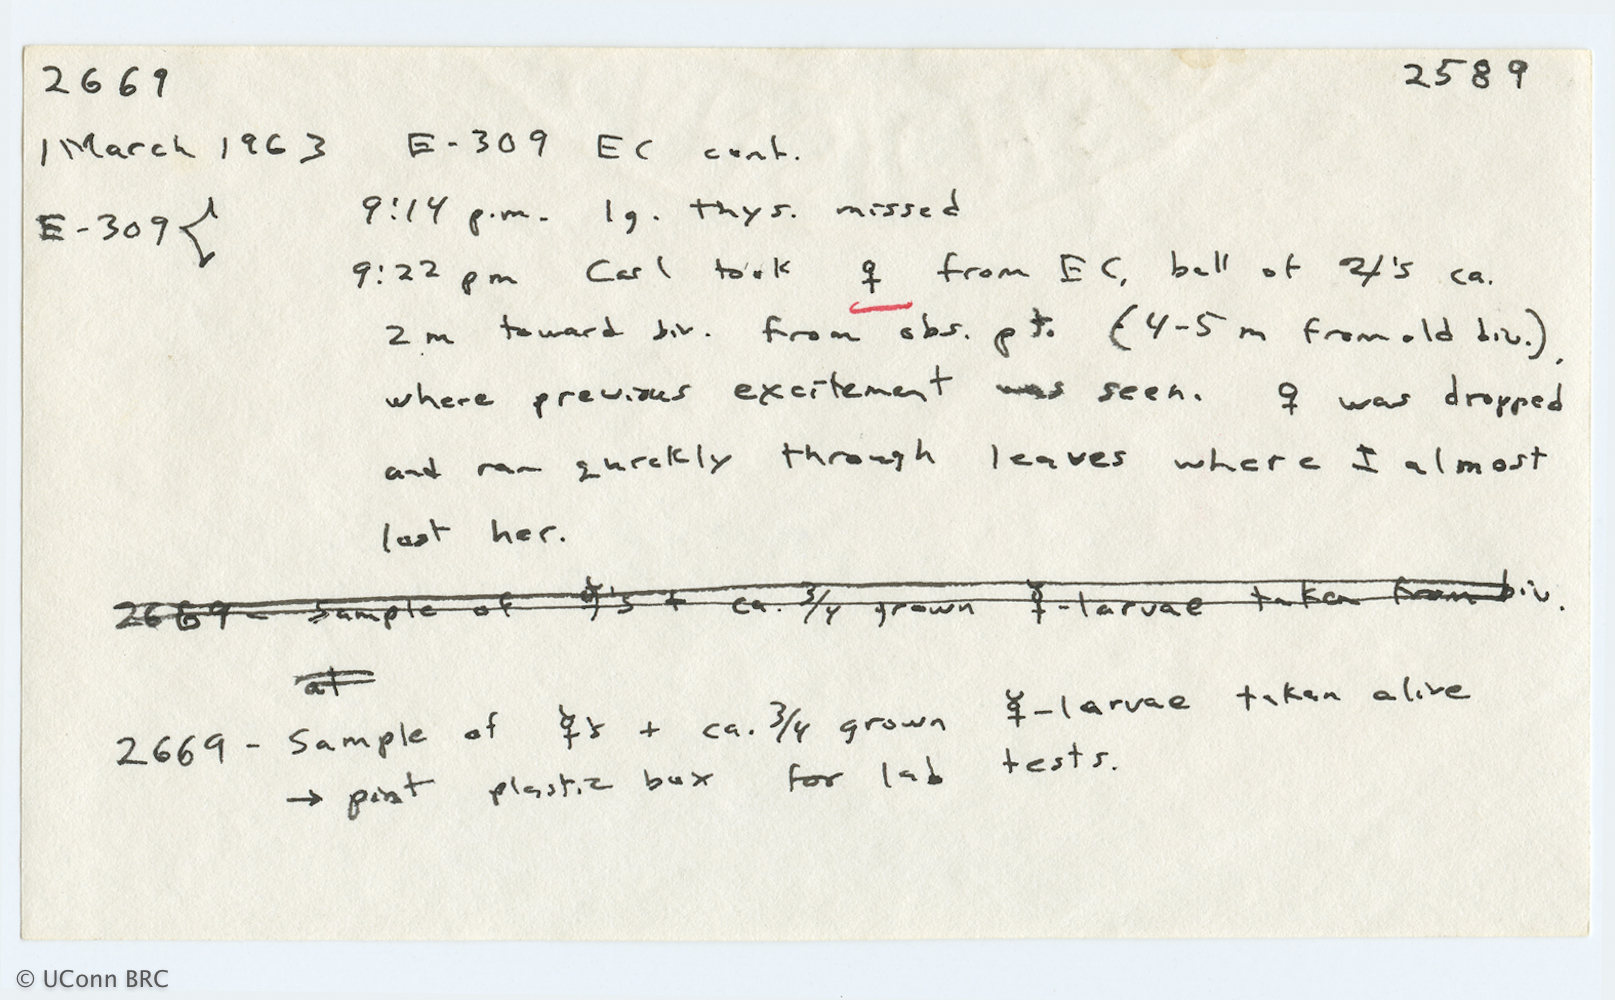 2669 2589
1 March 1963 E-309 EC cont.
E-309 { 9:14 p.m. lg. thys. missed
9:22 pm Carl took ♀ from EC, ball of 's ca.
2 m toward biv. from obs. pt. (4-5 m from old biv.),
where previous excitement was seen. ♀ was dropped
and ran quickly through leaves where I almost
lost her.
2669 - Sample of ☿'s + ca. 3/4 grown ☿-larvae taken from biv.
at
2669 - Sample of ☿s + ca. 3/4 grown ☿-larvae taken alive
→ pint plastic box for lab tests.
© UConn BRC